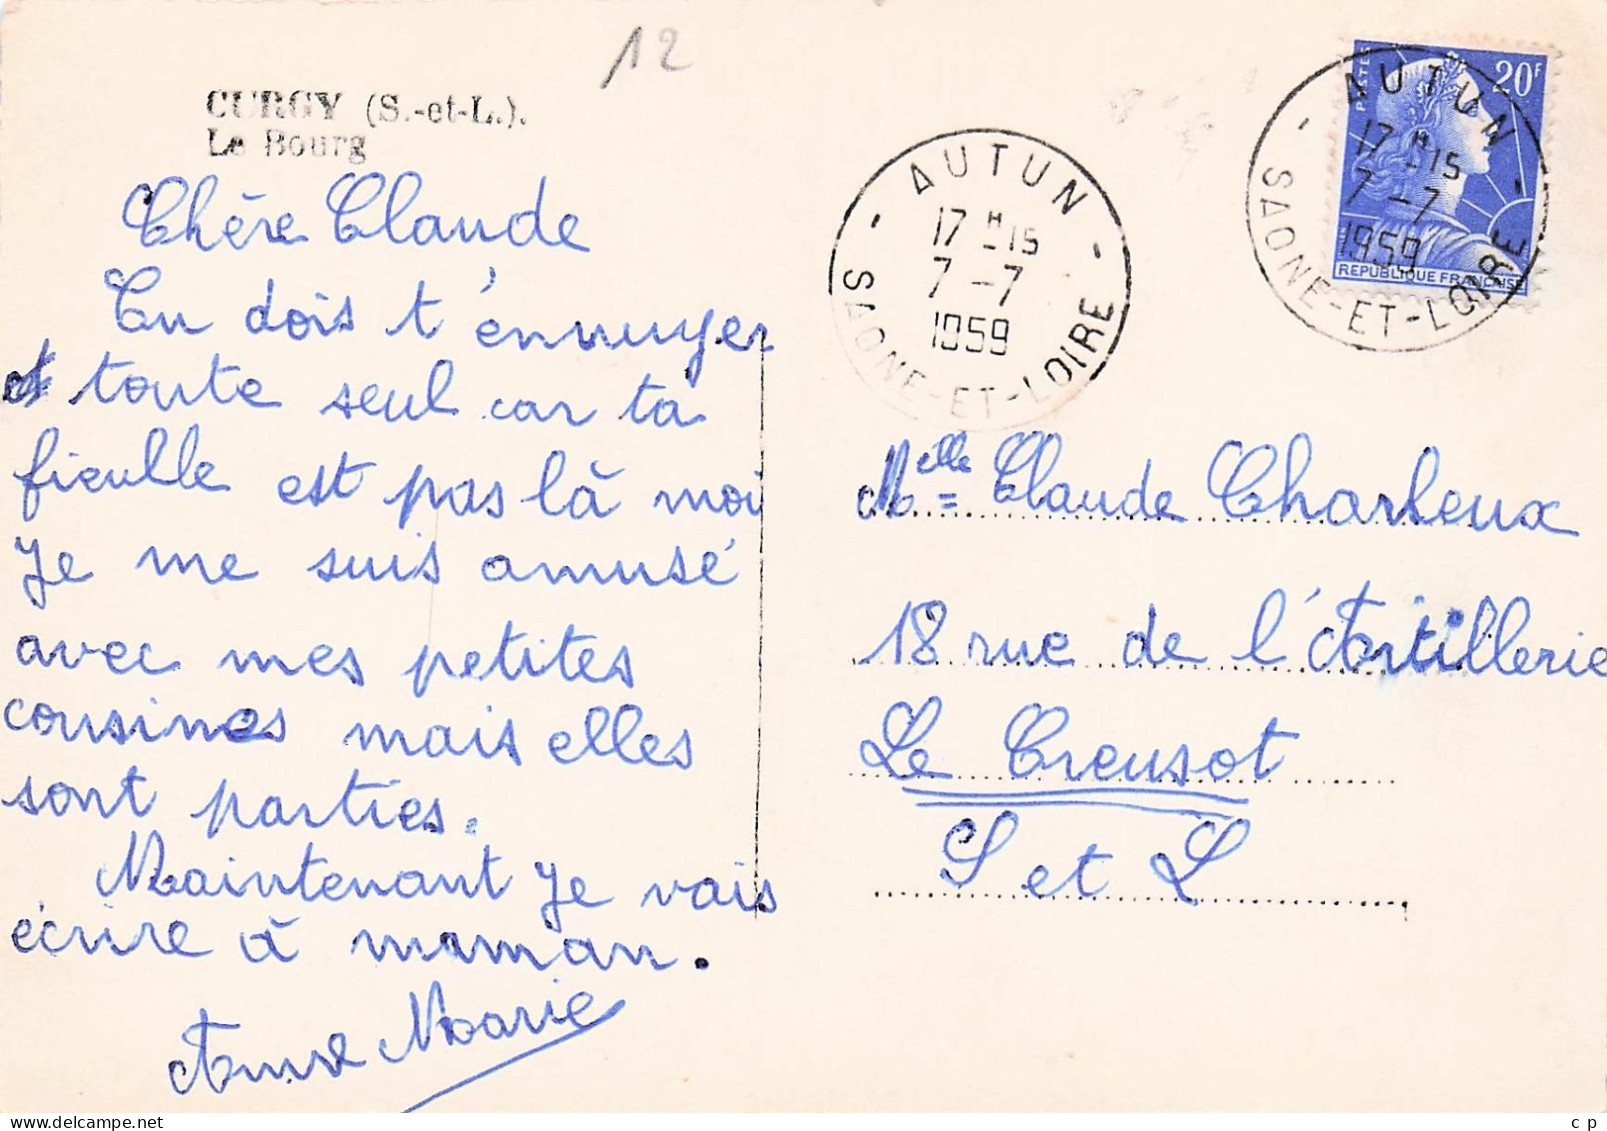 12
CURGY (S.-et-L.).
Le Bourg
Chère Claude
Tu dois t'ennuyer
toute seul car ta
fieulle est pas là moi
Je me suis amusé
avec mes petites
cousines mais elles
sont parties.
Maintenant Je vais
écrire à maman.
Anne Marie
AUTUN
17 H -15
7 -7
1959
SAONE-ET-LOIRE
POSTES
20F
REPUBLIQUE FRANCAISE
AUTUN
17 H -15
7 -7
1959
SAONE-ET-LOIRE
Melle Claude Charleux
18 rue de l'Artillerie
Le Creusot
S et L
c p